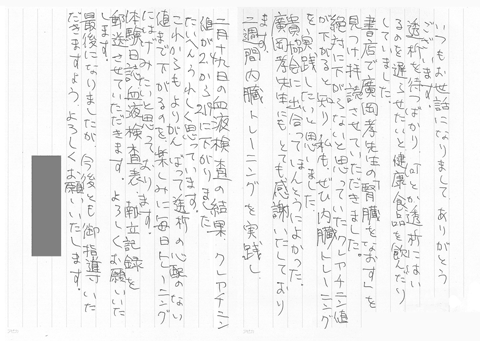 いつもお世話になりまして ありがとう
ございます。
透析を待つばかり 何とか透析にはい
るのを遅らせたいと健康食品を飲んだり
していました。
書店で廣岡孝先生の「腎臓をなおす」を
見つけ拝読させていただきました。
絶対に下がらないと思っていたクレアチニン値
が下がると知り 私もぜひ内臓トレーニング
を実践したいと思いました。
貴協会に出合ってほんとうによかった。
廣岡孝先生にもとても感謝いたしており
ます。
二週間内臓トレーニングを実践し
二月十九日の血液検査の結果 クレアチニン
値が2から2に下がりました。
たいへんうれしく思っています。
これからもよりがんばって透析の心配のない
値まで下がるのを楽しみに毎日トレーニング
にはげみたいと思っております。
体験日記 血液検査表 献立記録を
郵送させていただきます。よろしくお願いいた
します。
最後になりましたが、今後とも御指導いた
だきますよう よろしくお願いいたします。